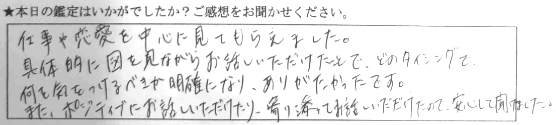 ★本日の鑑定はいかがでしたか？ご感想をお聞かせください。
仕事や恋愛を中心に見てもらえました。
具体的に図を見ながらお話しいただけたことで、どのタイミングで、
何を気をつけるべきか明確になり、ありがたかったです。
また、ポジティブにお話しいただけたり、寄り添ってお話しいただけたので、安心して聞けました。